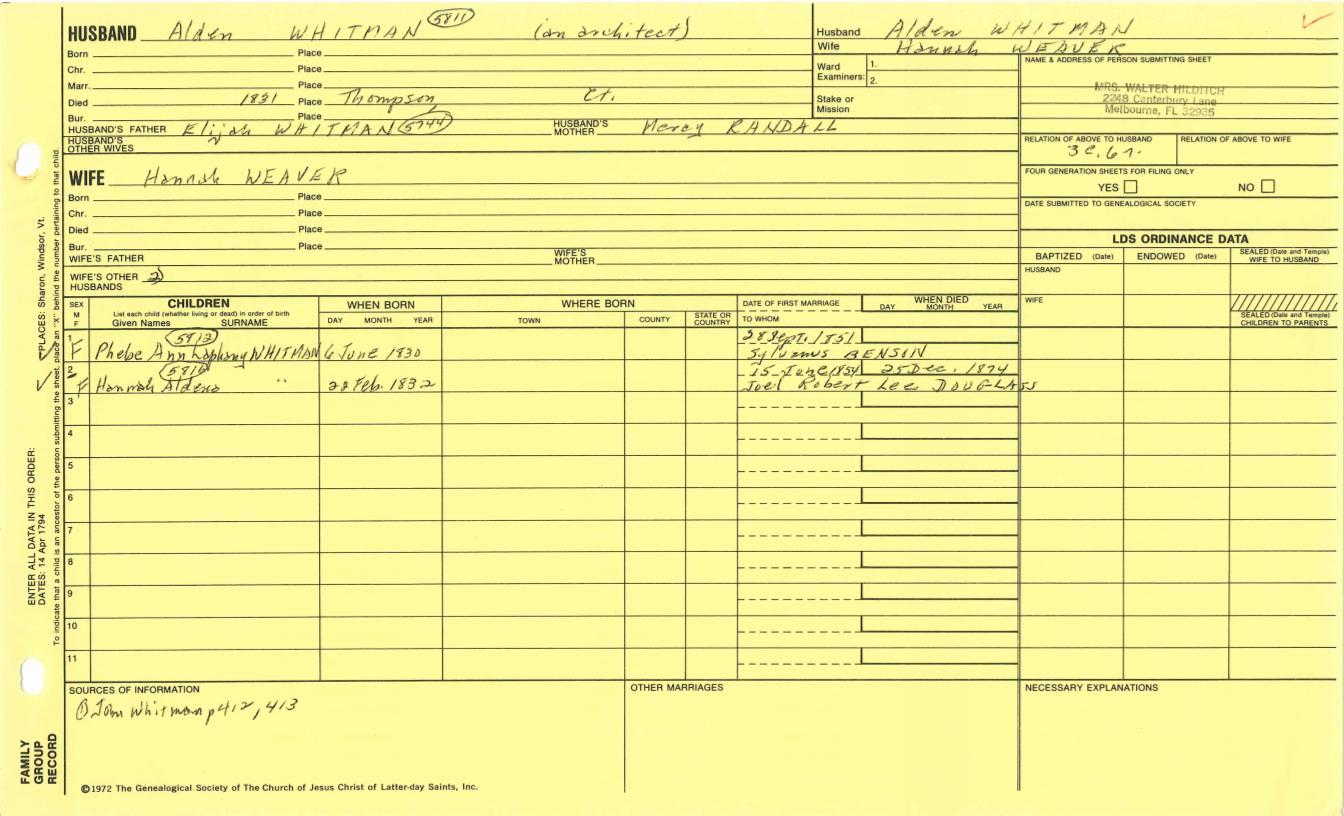 HUSBAND Alden WHITMAN 5811 (an architect)
Born Place
Chr. Place
Marr. Place
Died 1831 Place Thompson, Ct.
Bur. Place
HUSBAND'S FATHER Elijah WHITMAN 5744 HUSBAND'S MOTHER Mercy RANDALL
HUSBAND'S OTHER WIVES
WIFE Hannah WEAVER
Born Place
Chr. Place
Died Place
Bur. Place
WIFE'S FATHER WIFE'S MOTHER
WIFE'S OTHER HUSBANDS 2)
Husband Alden WHITMAN
Wife Hannah WEAVER
Ward Examiners: 1.
2.
Stake or Mission
NAME & ADDRESS OF PERSON SUBMITTING SHEET
MRS. WALTER HILDITCH
2248 Canterbury Lane
Melbourne, FL 32935
RELATION OF ABOVE TO HUSBAND RELATION OF ABOVE TO WIFE
3 C. 6 r.
FOUR GENERATION SHEETS FOR FILING ONLY
YES NO
DATE SUBMITTED TO GENEALOGICAL SOCIETY
LDS ORDINANCE DATA
BAPTIZED (Date) ENDOWED (Date) SEALED (Date and Temple) WIFE TO HUSBAND
HUSBAND
WIFE
SEALED (Date and Temple) CHILDREN TO PARENTS
SEX M F
CHILDREN
List each child (whether living or dead) in order of birth
Given Names SURNAME
WHEN BORN
DAY MONTH YEAR
WHERE BORN
TOWN COUNTY STATE OR COUNTRY
DATE OF FIRST MARRIAGE
TO WHOM
WHEN DIED
DAY MONTH YEAR
1 F Phebe Ann WHITMAN 6 June 1830 28 Sept. 1851
Sylvanus BENSON
2 F Hannah Aldena " 28 Feb. 1832 15 June 1854 25 Dec. 1874
Joel Robert Lee DOUGLASS
3
4
5
6
7
8
9
10
11
SOURCES OF INFORMATION
① John Whitman p 412, 413
OTHER MARRIAGES
NECESSARY EXPLANATIONS
©1972 The Genealogical Society of The Church of Jesus Christ of Latter-day Saints, Inc.
FAMILY GROUP RECORD
ENTER ALL DATA IN THIS ORDER:
DATES: 14 Apr 1794
PLACES: Sharon, Windsor, Vt.
To indicate that a child is an ancestor of the person submitting the sheet, place an "X" behind the number pertaining to that child.